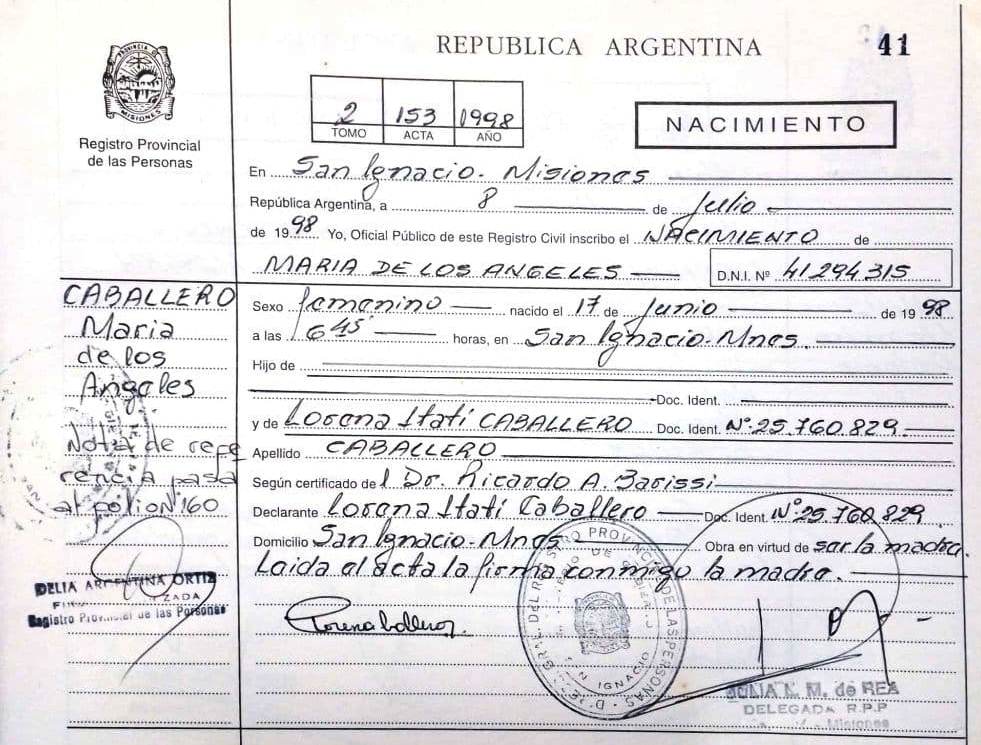 REPUBLICA ARGENTINA
41
PROVINCIA DE
MISIONES
Registro Provincial
de las Personas
2 153 1998
TOMO ACTA AÑO
NACIMIENTO
En San Ignacio - Misiones
República Argentina, a 8 de Julio
de 1998 Yo, Oficial Público de este Registro Civil inscribo el NACIMIENTO de
MARIA DE LOS ANGELES D.N.I. Nº 41294315
Sexo femenino nacido el 17 de Junio de 1998
a las 645 horas, en San Ignacio - Mnes.
Hijo de
Doc. Ident.
y de Lorena Itatí CABALLERO Doc. Ident. Nº 25.760.829.
Apellido CABALLERO
Según certificado del Dr. Ricardo A. Barissi
Declarante Lorena Itatí Caballero Doc. Ident. Nº 25.760.829.
Domicilio San Ignacio - Mnes Obra en virtud de ser la madre.
Leida el acta la firma conmigo la madre.
CABALLERO
Maria
de los
Angeles
Nota de refe
rencia pasa
al folio Nº 160
DELIA ARGENTINA ORTIZ
Registro Provincial de las Personas
SAN IGNACIO
DELEGADA R.P.P
Misiones